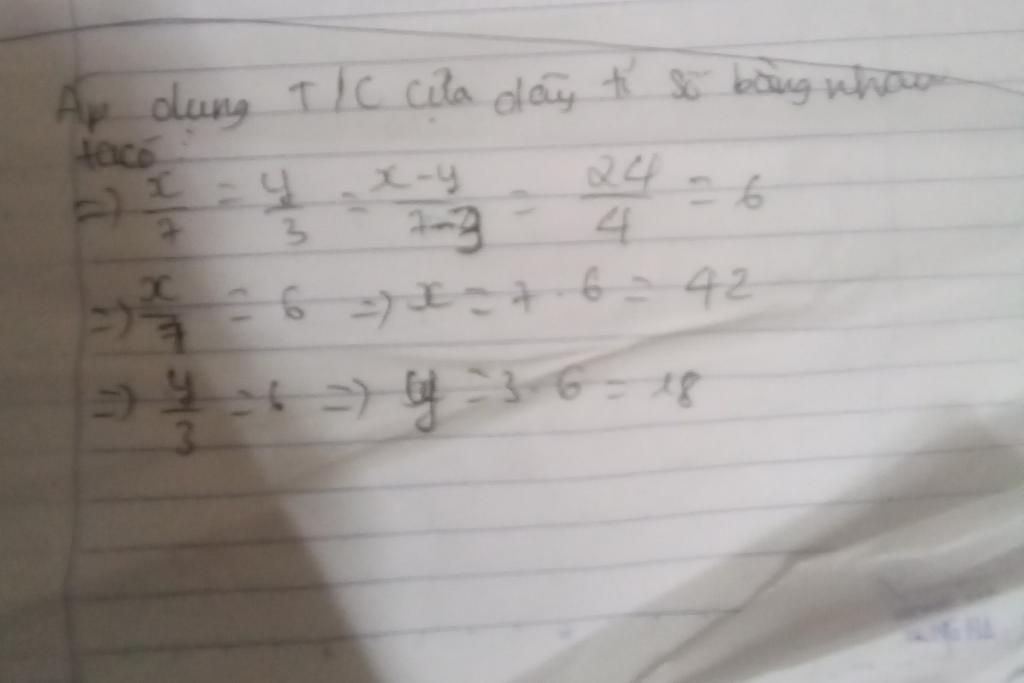 Áp dụng T/C của dãy tỉ số bằng nhau
ta có:
=> x/7 = y/3 = x-y/7-3 = 24/4 = 6
=> x/7 = 6 => x = 7 . 6 = 42
=> y/3 = 6 => y = 3 . 6 = 18